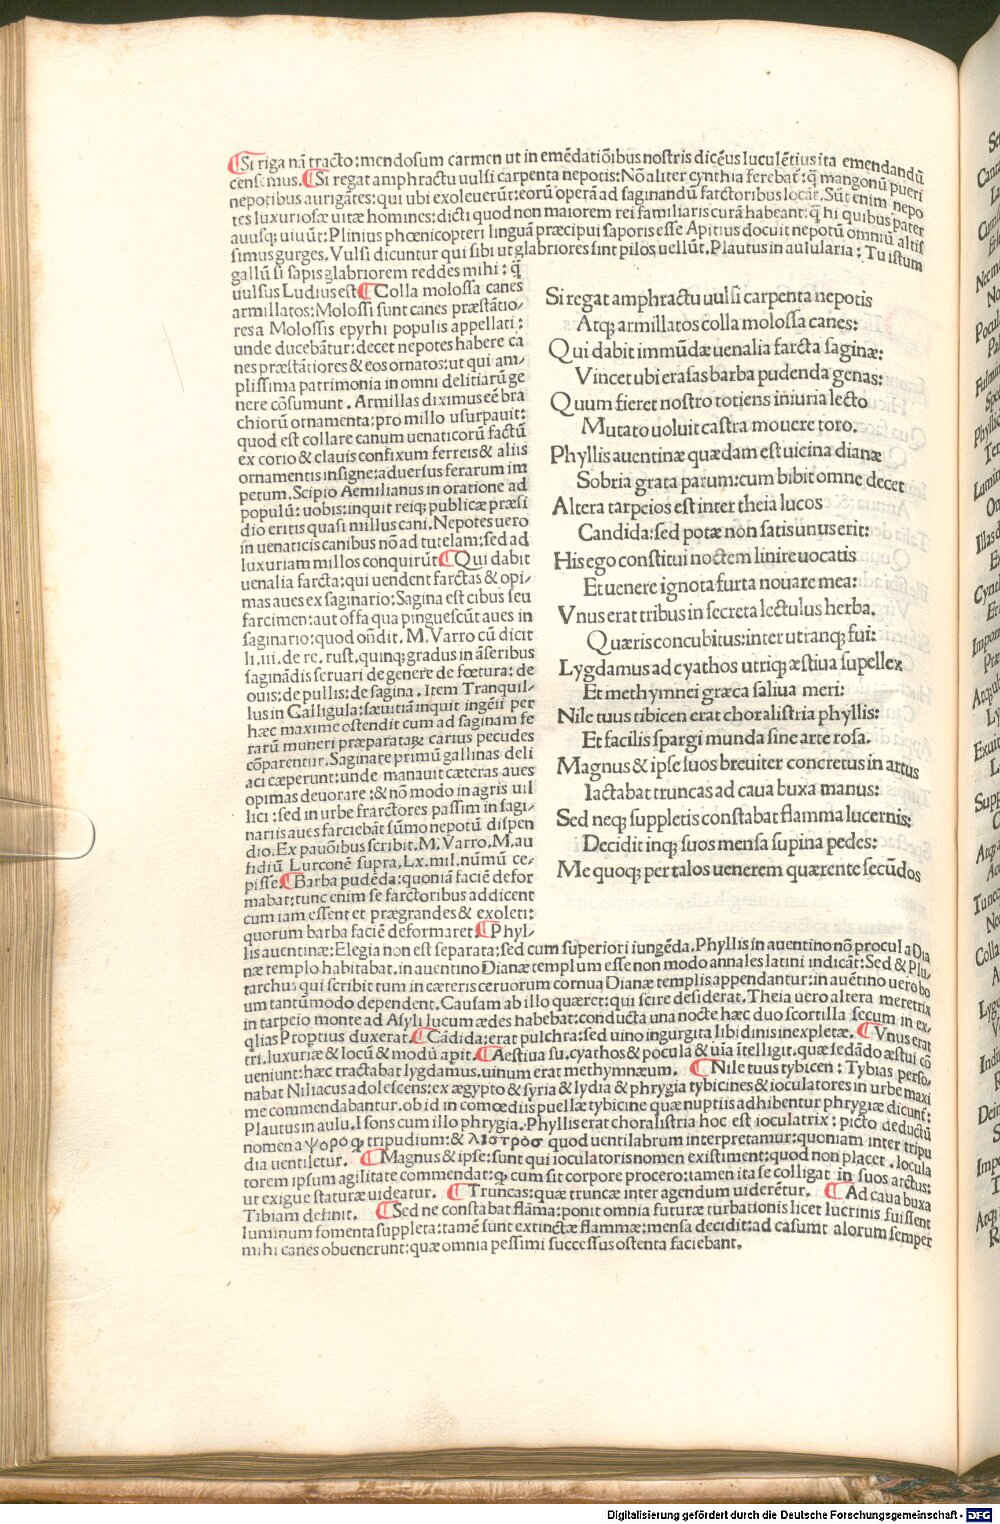 ¶Si riga nā tracto:mendosum carmen ut in emēdatiōibus nostris dicēus luculētius ita emendandū
censemus.¶Si regat amphractu uulsi carpenta nepotis:Nō aliter cynthia ferebat: q̄ mangonū pueri
nepotibus aurigātes:qui ubi exoleuerūt:eorū operā ad saginandū farctoribus locāt.Sūt enim nepo
tes luxuriosæ uitæ homines:dicti quod non maiorem rei familiaris curā habeant:q̄ hi quibus pater
auusq; uiuūt:Plinius phœnicopteri linguā præcipui saporis esse Apitius docuit nepotū omniū altis
simus gurges.Vulsi dicuntur qui sibi ut glabriores sint pilos uellūt.Plautus in aulularia:Tu istum
gallū si sapis glabriorem reddes mihi:q̄
uulsus Ludius est¶Colla molossa canes
armillatos:Molossi sunt canes præstātio/
res a Molossis epyrhi populis appellati:
unde ducebātur:decet nepotes habere ca
nes præstātiores & eos ornatos:ut qui am/
plissima patrimonia in omni delitiarū ge
nere cōsumunt.Armillas diximus eē bra
chiorū ornamenta:pro millo usurpauit:
quod est collare canum uenaticorū factū
ex corio & clauis confixum ferreis & aliis
ornamentis insigne:aduersus ferarum im
petum.Scipio Aemilianus in oratione ad
populū:uobis:inquit reiq; publicæ præsi
dio eritis quasi millus cani.Nepotes uero
in uenaticis canibus nō ad tutelam:sed ad
luxuriam millos conquirūt¶Qui dabit
uenalia farcta:qui uendent farctas & opi/
mas aues ex saginario:Sagina est cibus seu
farcimen:aut offa qua pinguescūt aues in
saginario:quod oñdit.M.Varro cū dicit
li.iii.de re.rust.quinq; gradus in āseribus
saginādis seruari de genere de fœtura:de
ouis:de pullis:de sagina.Item Tranquil/
lus in Galligula:sæuitiā inquit ingēii per
hæc maxime ostendit cum ad saginam fe
rarū muneri præparataꝝ carius pecudes
cōparentur.Saginare primū gallinas deli
aci cæperunt:unde manauit cæteras aues
opimas deuorare:& nō modo in agris uil
lici:sed in urbe frarctores passim in sagi/
nariis aues farciebāt sūmo nepotū dispen
dio.Ex pauōibus scribit.M.Varro.M.au
fidiū Lurconē supra.Lx.mil.nūmū ce/
pisse.¶Barba pudēda:quoniā faciē defor
mabat:tunc enim se farctoribus addicent
cum iam essent et prægrandes & exoleti:
quorum barba faciē deformaret.¶Phyl/
Si regat amphractu uulsi carpenta nepotis
Atq; armillatos colla molossa canes:
Qui dabit immūdæ uenalia farcta saginæ:
Vincet ubi erasas barba pudenda genas:
Quum fieret nostro totiens iniuria lecto
Mutato uoluit castra mouere toro.
Phyllis auentinæ quædam est uicina dianæ
Sobria grata parum:cum bibit omne decet
Altera tarpeios est inter theia lucos
Candida:sed potæ non satis unus erit:
His ego constitui noctem linire uocatis
Et uenere ignota furta nouare mea:
Vnus erat tribus in secreta lectulus herba.
Quæris concubitus:inter utranq; fui:
Lygdamus ad cyathos utriq; æstiua supellex
Et methymnei græca saliua meri:
Nile tuus tibicen erat choralistria phyllis:
Et facilis spargi munda sine arte rosa.
Magnus & ipse suos breuiter concretus in artus
Iactabat truncas ad caua buxa manus:
Sed neq; suppletis constabat flamma lucernis:
Decidit inq; suos mensa supina pedes:
Me quoq; per talos uenerem quærente secūdos
lis auentinæ:Elegia non est separata:sed cum superiori iungēda.Phyllis in auentino nō procul a Dia
næ templo habitabat.in auentino Dianæ templum esse non modo annales latini indicāt:Sed & Plu/
tarchus qui scribit tum in cæteris ceruorum cornua Dianæ templis appendantur:in auētino uero bo
um tantūmodo dependent.Causam ab illo quæret:qui scire desiderat.Theia uero altera meretrix
in tarpeio monte ad Asyli lucum ædes habebat:conducta una nocte hæc duo scortilla secum in ex/
qlias Proptius duxerat.¶Cādida:erat pulchra:sed uino ingurgita libidinis inexpletæ.¶Vnus erat
tri.luxuriæ & locū & modū apit.¶Aestiua su.cyathos & pocula & uīa ītelligit.quæ sedādo æstui cō
ueniunt:hæc tractabat lygdamus.uinum erat methymnæum.¶Nile tuus tybicen:Tybias perso/
nabat Niliacus adolescens:ex ægypto & syria & lydia & phrygia tybicines & ioculatores in urbe maxi
me commendabantur.ob id in comœdiis puellæ tybicine quæ nuptiis adhibentur phrygiæ dicunt:
Plautus in aulu.Isons cum illo phrygia.Phyllis erat choralistria hoc est ioculatrix:picto deductū
nomen a ψορό q̄ tripudium:& λιστρὸσ quod uentilabrum interpretamur:quoniam inter tripu
dia uentiletur.¶Magnus & ipse:sunt qui ioculatoris nomen existiment:quod non placet.Iocula
torem ipsum agilitate commendat:q̄ cum sit corpore procero:tamen ita se colligat in suos arctus:
ut exigue staturæ uideatur.¶Truncas:quæ truncæ inter agendum uiderētur.¶Ad caua buxa
Tibiam definit.¶Sed ne constabat flāma:ponit omnia futuræ turbationis licet lucrinis fuissent
luminum fomenta suppleta:tamē sunt extinctæ flammæ:mensa decidit:ad casumt alorum semper
mihi canes obuenerunt:quæ omnia pessimi successus ostenta faciebant.
Digitalisierung gefördert durch die Deutsche Forschungsgemeinschaft - DFG